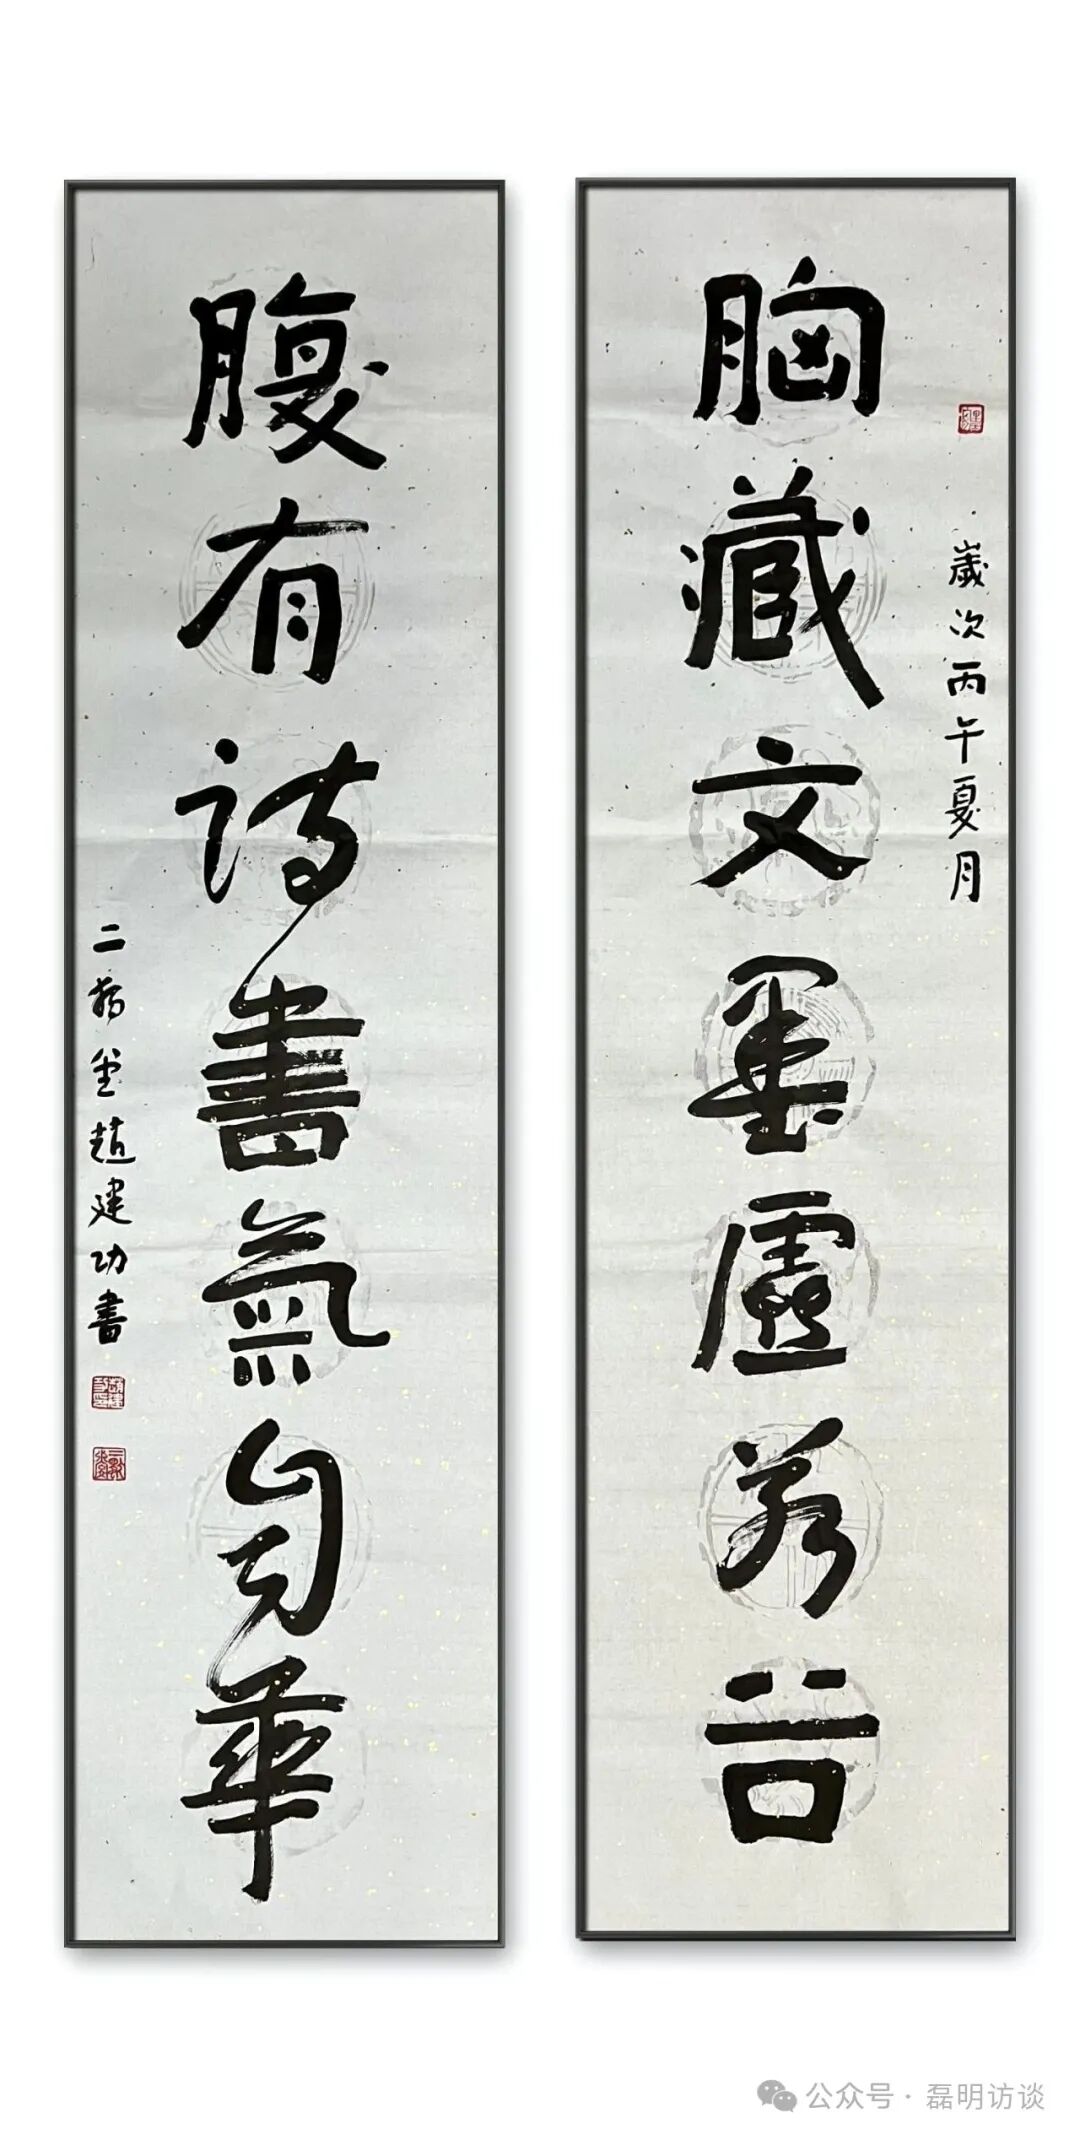 胸藏文墨虛若谷
歲次丙午夏月
腹有詩書氣自華
二堂趙建功書
公众号·磊明访谈